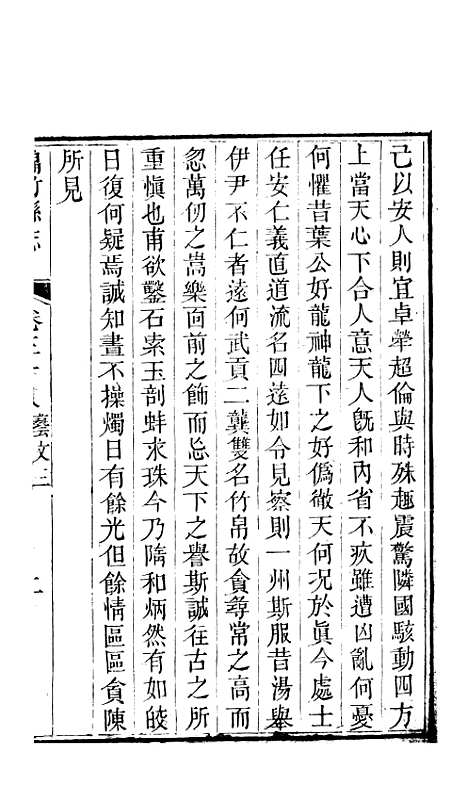 己以安人則宜卓犖超倫與時殊趣震驚隣國駭動四方
上當天心下合人意天人旣和內省不疚雖遭凶亂何憂
何懼昔葉公好龍神龍下之好僞徹天何況於眞今處士
任安仁義直道流名四遠如令見察則一州斯服昔湯舉
伊尹不仁者遠何武貢二龔雙名竹帛故貪尋常之高而
忽萬仞之嵩樂面前之飾而忘天下之譽斯誠往古之所
重愼也甫欲鑿石索玉剖蚌求珠今乃隋和炳然有如皎
日復何疑焉誠知晝不操燭日有餘光但餘情區區貪陳
所見
竹縣志
卷三十八藝文三